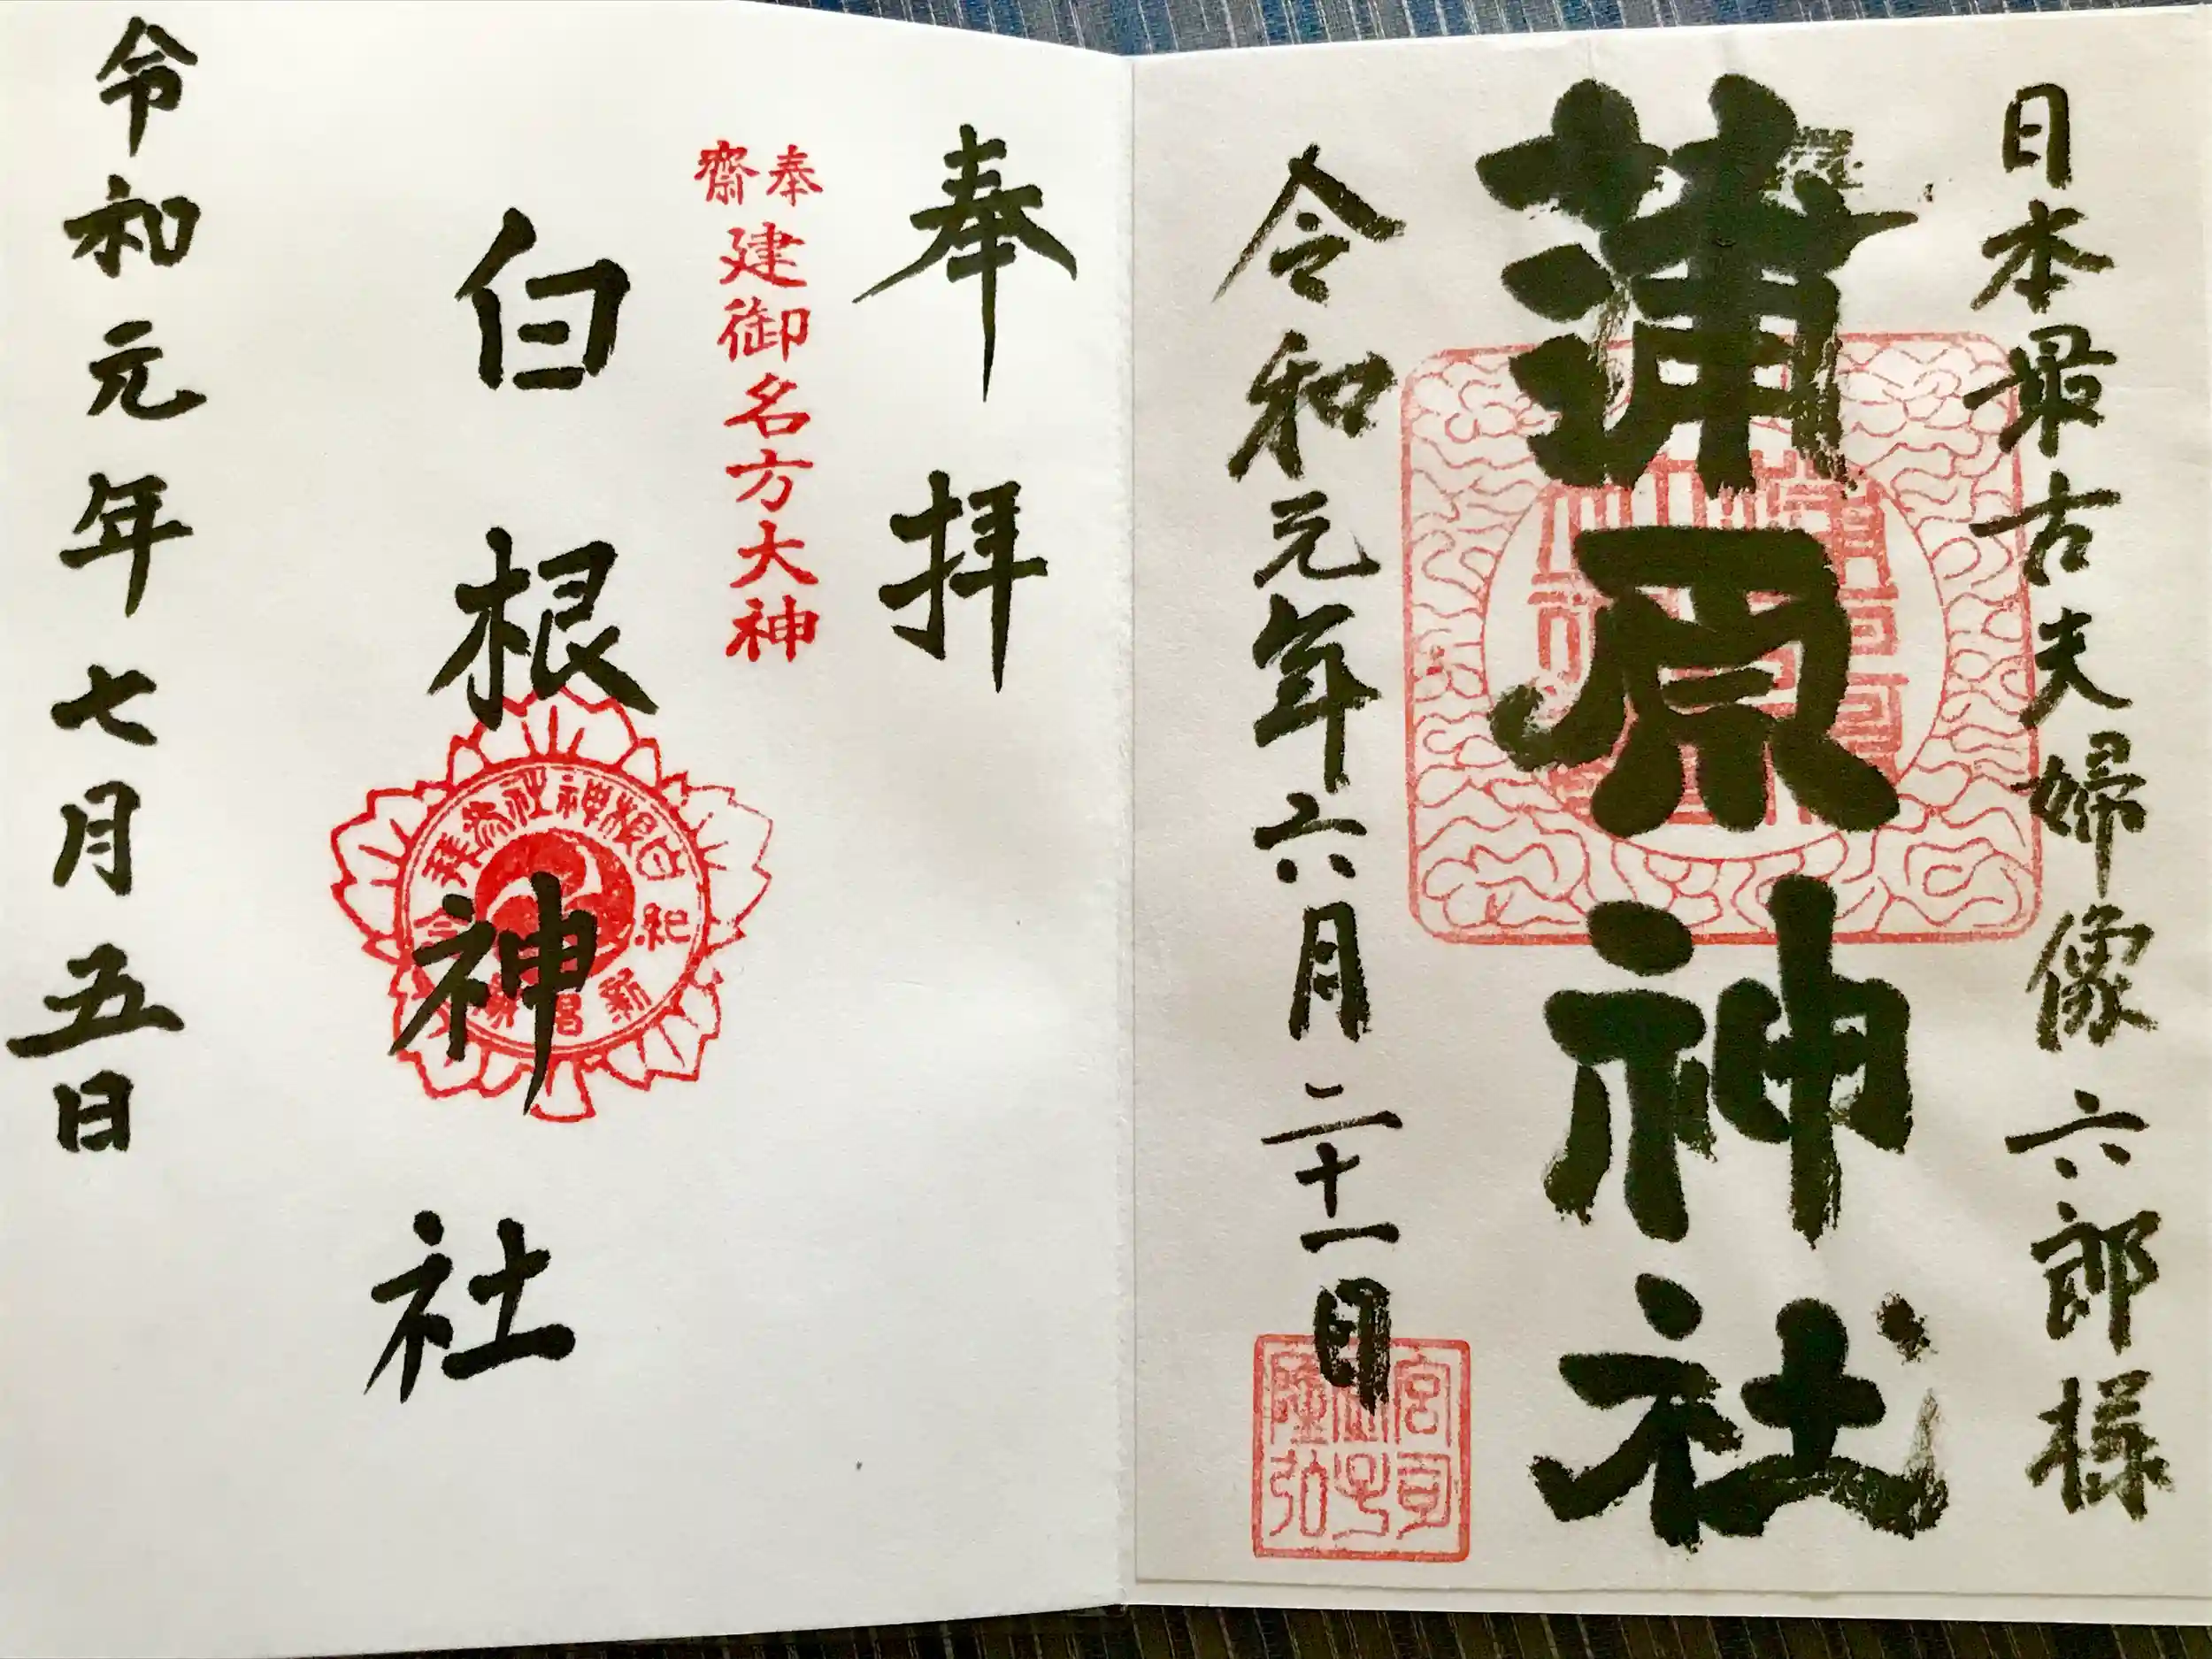 日本最古夫婦像 六郎様
蒲原神社
令和元年六月二十一日
宮司
隆弘
奉拝
奉齋 建御名方大神
白根神社
白根神社参拝
紀
令和元年七月五日